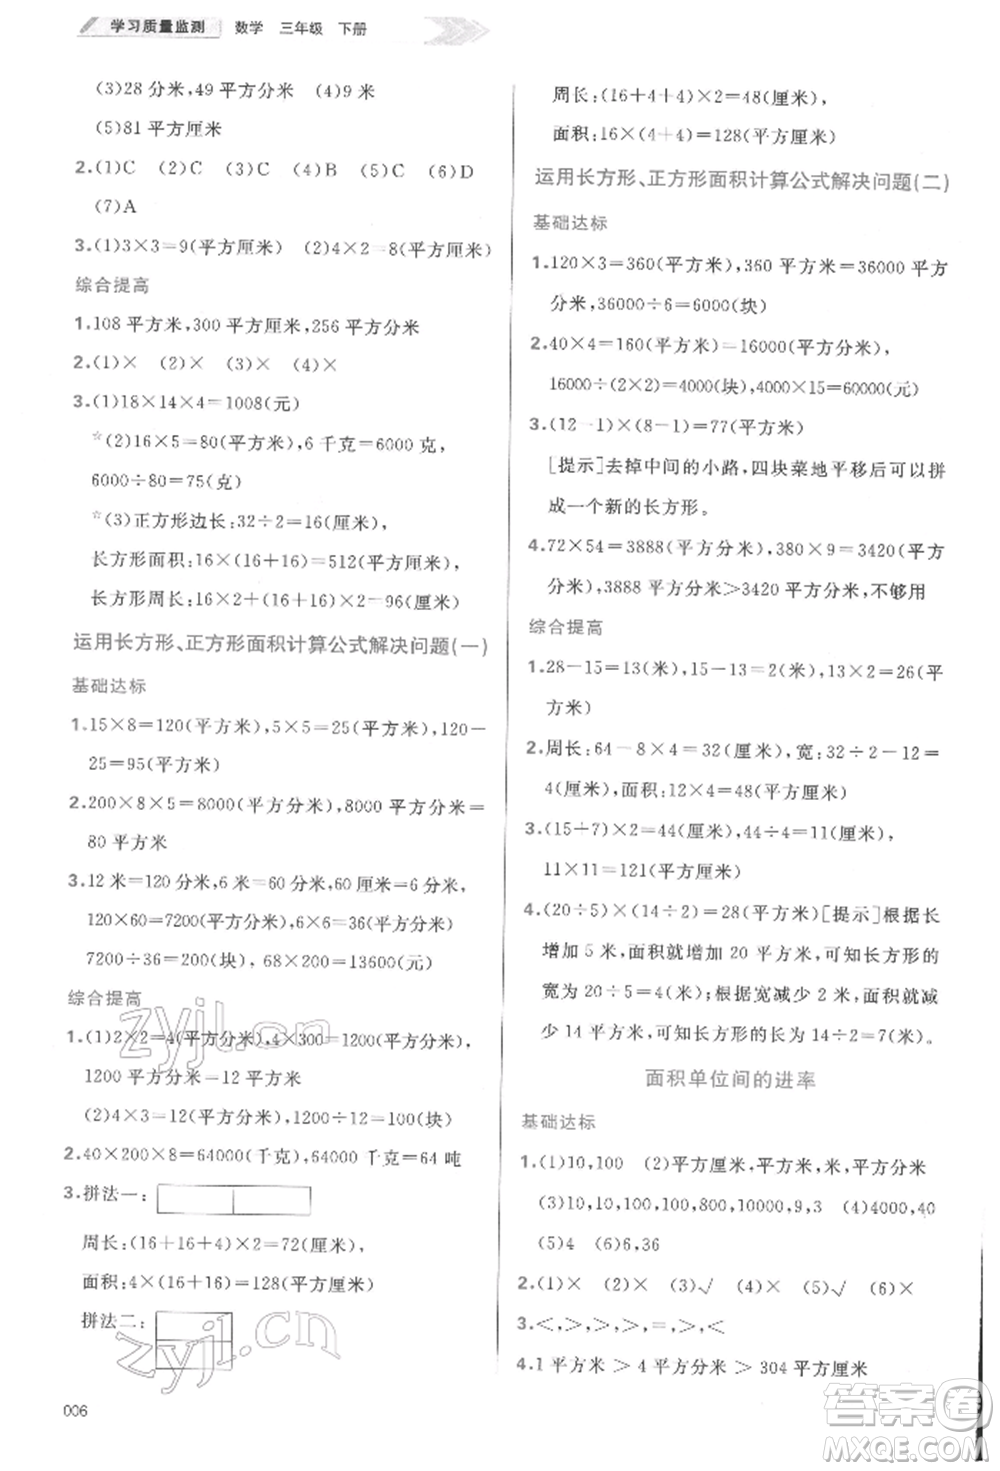 学习质量监测 数学 三年级 下册
(3)28分米,49平方分米 (4)9米
(5)81平方厘米
2.(1)C (2)C (3)C (4)B (5)C (6)D
(7)A
3.(1)3×3=9(平方厘米) (2)4×2=8(平方厘米)
综合提高
1.108平方米,300平方厘米,256平方分米
2.(1)× (2)× (3)× (4)×
3.(1)18×14×4=1008(元)
☆(2)16×5=80(平方米),6千克=6000克,
6000÷80=75(克)
☆(3)正方形边长:32÷2=16(厘米),
长方形面积:16×(16+16)=512(平方厘米),
长方形周长:16×2+(16+16)×2=96(厘米)
运用长方形、正方形面积计算公式解决问题(一)
基础达标
1.15×8=120(平方米),5×5=25(平方米),120-
25=95(平方米)
2.200×8×5=8000(平方分米),8000平方分米=
80平方米
3.12米=120分米,6米=60分米,60厘米=6分米,
120×60=7200(平方分米),6×6=36(平方分米)
7200÷36=200(块),68×200=13600(元)
综合提高
1.(1)2×2=4(平方分米),4×300=1200(平方分米),
1200平方分米=12平方米
(2)4×3=12(平方分米),1200÷12=100(块)
2.40×200×8=64000(千克),64000千克=64吨
3.拼法一:
周长:(16+16+4)×2=72(厘米),
面积:4×(16+16)=128(平方厘米)
拼法二:
006
周长:(16+4+4)×2=48(厘米),
面积:16×(4+4)=128(平方厘米)
运用长方形、正方形面积计算公式解决问题(二)
基础达标
1.120×3=360(平方米),360平方米=36000平方
分米,36000÷6=6000(块)
2.40×4=160(平方米)=16000(平方分米),
16000÷(2×2)=4000(块),4000×15=60000(元)
3.(12-1)×(8-1)=77(平方米)
[提示]去掉中间的小路,四块菜地平移后可以拼
成一个新的长方形。
4.72×54=3888(平方分米),380×9=3420(平方
分米),3888平方分米>3420平方分米,不够用
综合提高
1.28-15=13(米),15-13=2(米),13×2=26(平
方米)
2.周长:64-8×4=32(厘米),宽:32÷2-12=
4(厘米),面积:12×4=48(平方厘米)
3.(15+7)×2=44(厘米),44÷4=11(厘米),
11×11=121(平方厘米)
4.(20÷5)×(14÷2)=28(平方米)[提示]根据长
增加5米,面积就增加20平方米,可知长方形的
宽为20÷5=4(米);根据宽减少2米,面积就减
少14平方米,可知长方形的长为14÷2=7(米)。
面积单位间的进率
基础达标
1.(1)10,100 (2)平方厘米,平方米,米,平方分米
(3)10,10,100,100,800,10000,9,3 (4)4000,40
(5)4 (6)6,36
2.(1)× (2)× (3)√ (4)× (5)√ (6)×
3.<,>,<,>,>,<
4.1平方米>4平方分米>304平方厘米
zyjl.cn
zyjl.cn
答案圈
MXQE.COM